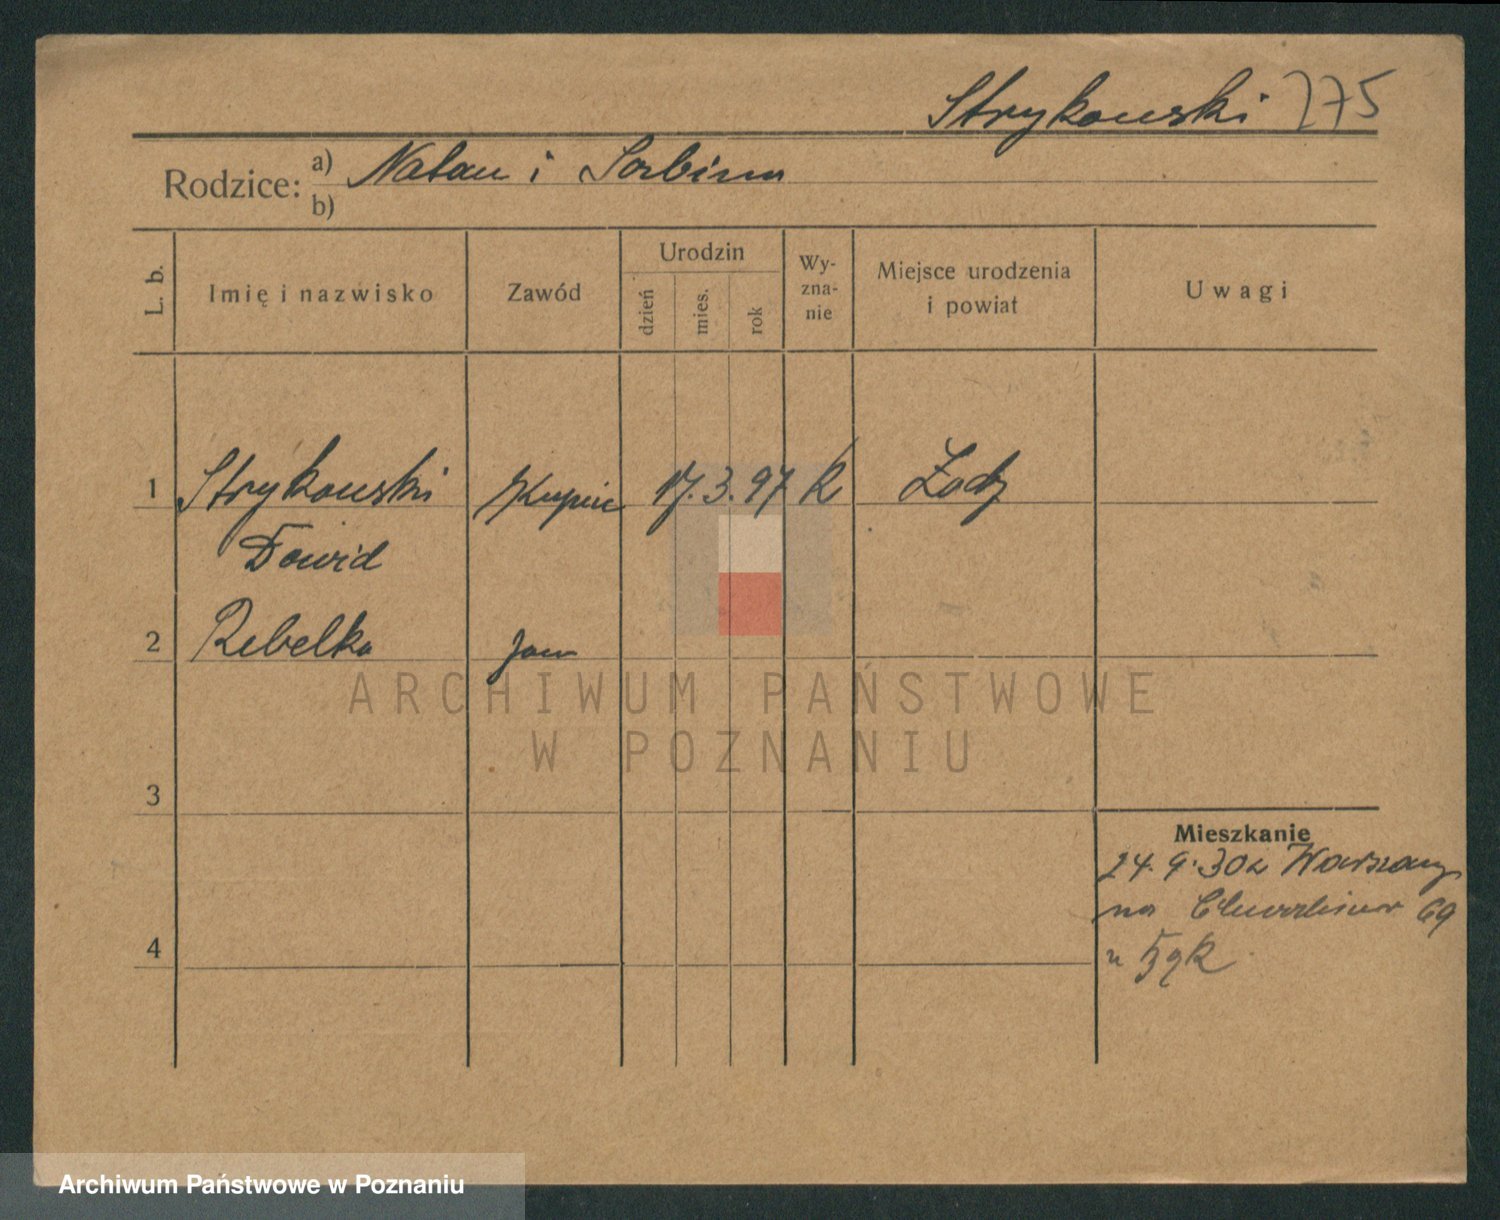 Strykowski 275
Rodzice: a) Natan i Sabina
b)
L. b.
Imię i nazwisko
Zawód
Urodzin
dzień
mies.
rok
Wy-
zna-
nie
Miejsce urodzenia
i powiat
Uwagi
1 Strykowski Kupiec 17. 3. 97 Łodz
Dawid
2 Rebelka
ARCHIWUM PAŃSTWOWE
W POZNANIU
3
Mieszkanie
24. 9. 30 z Warszawy
na 69
4
Archiwum Państwowe w Poznaniu